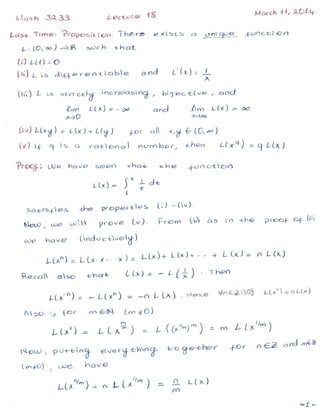 Math 3233 Lecture 18 March 11, 2014
Last Time: Proposition: There exists a unique function
L: (0,∞) → ℝ such that
(i) L(1) = 0
(ii) L is differentiable and L'(x) = 1/x
(iii) L is strictly increasing, bijective, and
lim x→0 L(x) = -∞ and lim x→∞ L(x) = ∞
(iv) L(xy) = L(x) + L(y) for all x,y ∈ (0,∞).
(v) if q is a rational number, then L(x^q) = q L(x)
Proof: We have seen that the function
L(x) = ∫_1^x 1/t dt
satisfies the properties (i) – (iv).
Now, we will prove (v). From (iv) as in the proof of (iii)
we have (inductively)
L(x^n) = L(x·x···x) = L(x) + L(x) + ··· + L(x) = n L(x)
Recall also that L(x) = - L(1/x). Then
L(x^-n) = - L(x^n) = -n L(x). Hence ∀n∈ℤ\{0} L(x^n) = n L(x)
Also, for m∈ℕ (m≠0)
L(x^1) = L(x^(m/m)) = L((x^(1/m))^m) = m L(x^(1/m))
Now, putting everything together for n∈ℤ and m∈ℕ
(m≠0), we have
L(x^(n/m)) = n L(x^(1/m)) = n/m L(x)
-1-